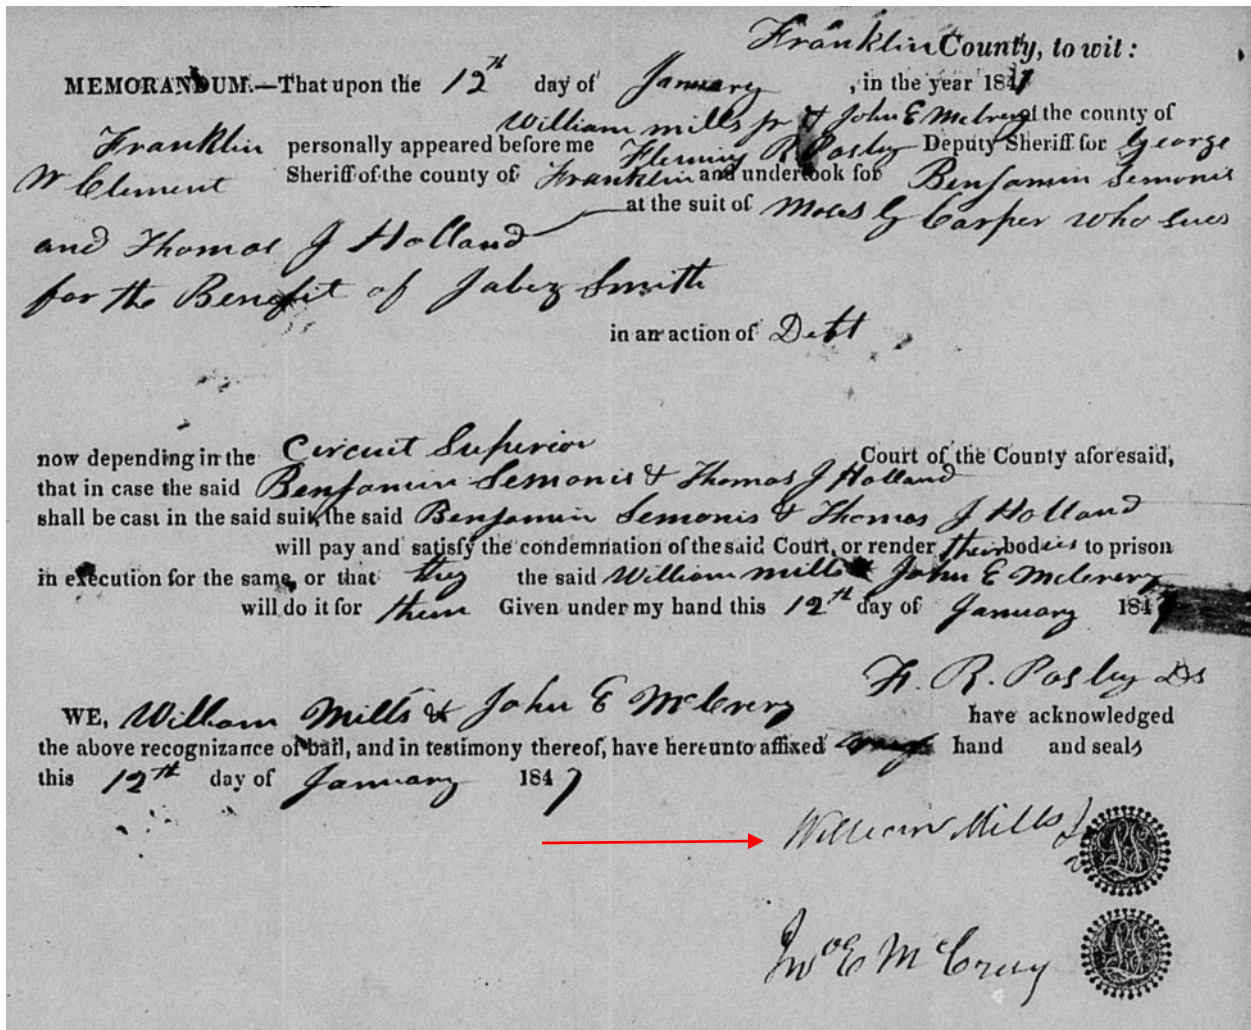 Franklin County, to wit:
MEMORANDUM.—That upon the 12th day of January , in the year 1847
William mills jr & John E McCrery of the county of
Franklin personally appeared before me Fleming R Posley Deputy Sheriff for George
W Clement Sheriff of the county of Franklin and undertook for Benjamin Semonis
and Thomas J Holland at the suit of Moses G Carper who sues
for the Benefit of Jabez Smith
in an action of Debt
now depending in the Circuit Superior Court of the County aforesaid,
that in case the said Benjamin Semonis & Thomas J Holland
shall be cast in the said suit, the said Benjamin Semonis & Thomas J Holland
will pay and satisfy the condemnation of the said Court, or render their bodies to prison
in execution for the same, or that they the said William mills & John E McCrery
will do it for them Given under my hand this 12th day of January 1847
F. R. Posley DS
WE, William Mills & John E McCrery have acknowledged
the above recognizance of bail, and in testimony thereof, have hereunto affixed hand and seals
this 12th day of January 1847
William Mills Jr
Jno E McCrery